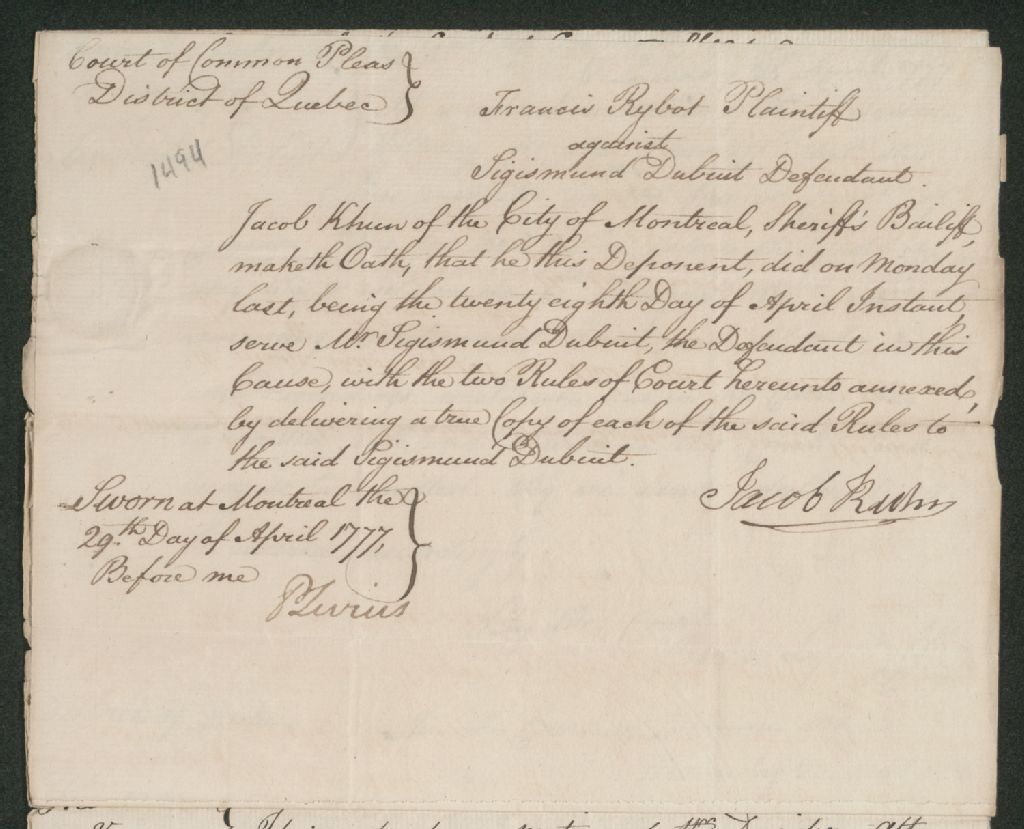 Court of Common Pleas
District of Quebec
Francis Rybot Plaintiff
against
Sigismund Dubuit Defendant.
1494
Jacob Khun of the City of Montreal, Sheriff's Bailiff,
maketh Oath, that he this Deponent, did on Monday
last, being the twenty eighth Day of April Instant,
serve Mr. Sigismund Dubuit, the Defendant in this
Cause, with the two Rules of Court hereunto annexed,
by delivering a true Copy of each of the said Rules to
the said Sigismund Dubuit.
Sworn at Montreal the
29th. Day of April 1777,
Before me
Jacob Kuhn